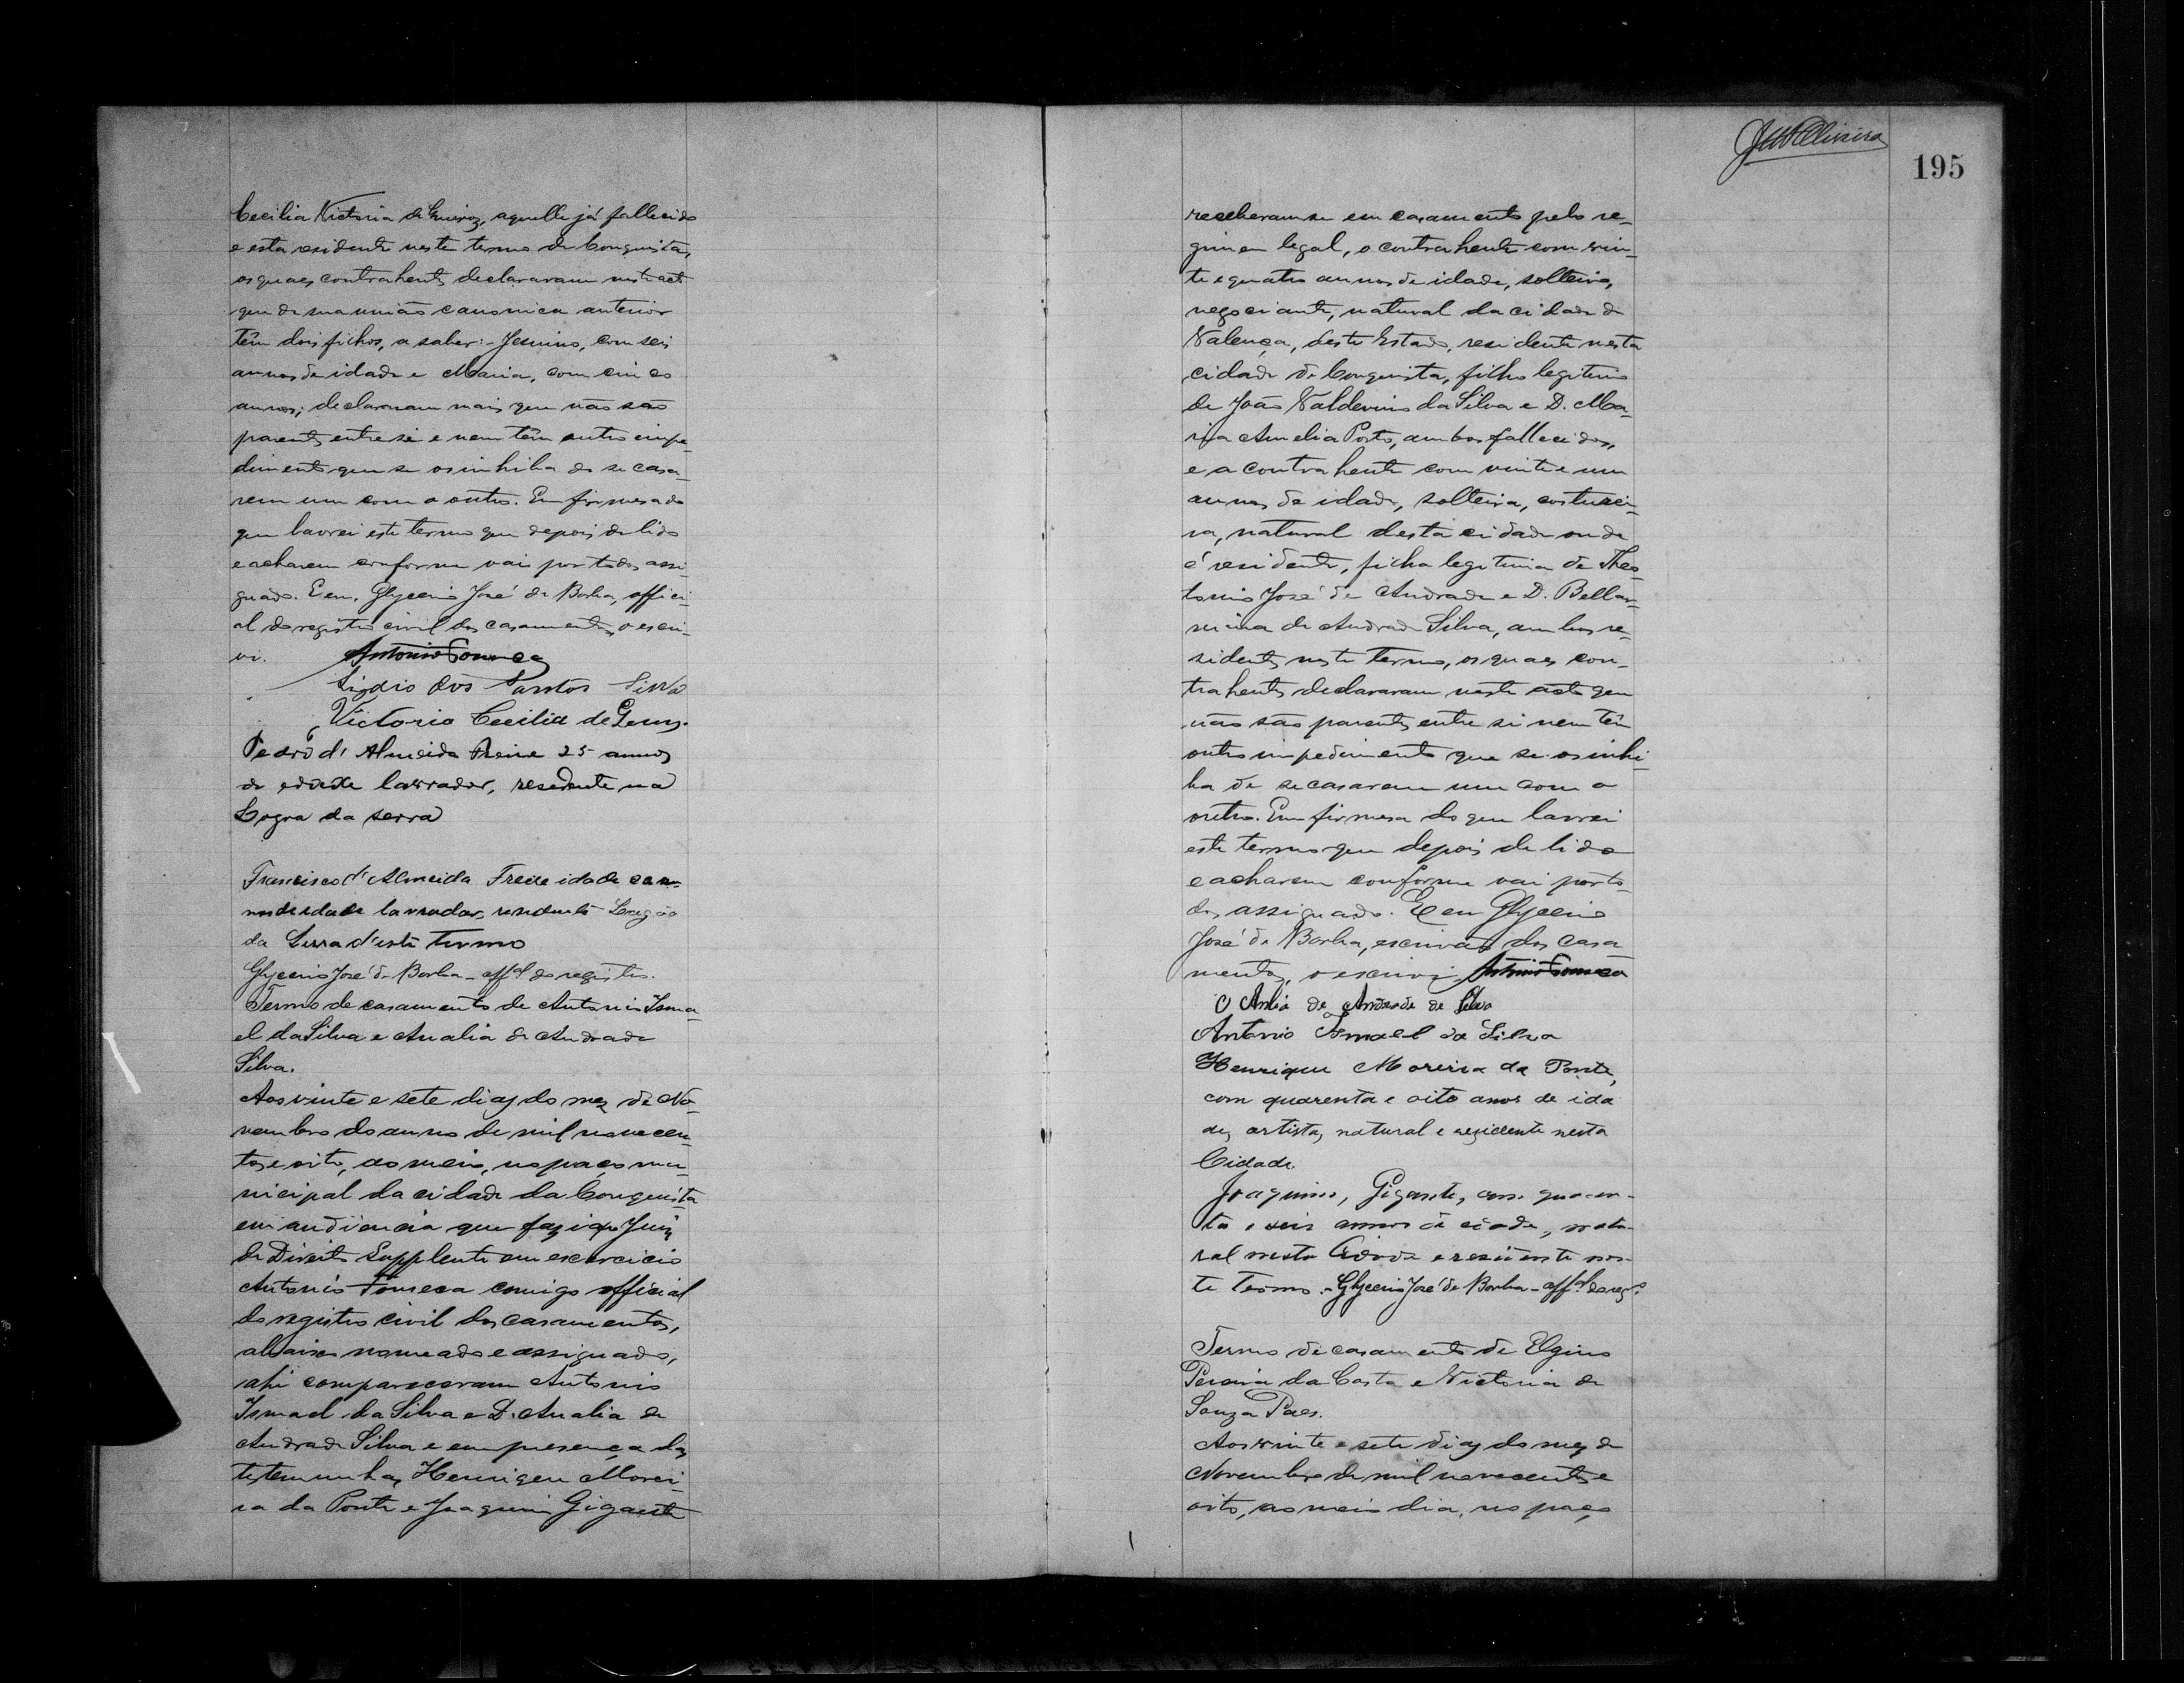 Cecilia Victoria de Queiroz, aquelle já fallecido
e esta residente neste termo de Conquista,
os quaes contrahentes declararam neste acto
que de sua união canonica anterior
têm dois filhos, a saber:- Jesuino, com seis
annos de idade e Maria, com cinco
annos; declararam mais que não são
parentes entre si e nem têm outro impe-
dimento que se os inhiba de se casa-
rem um com o outro. Em firmesa do
que lavrei este termo que depois de lido
e acharem conforme vai por todos assi-
gnado. E eu, Glycerio José de Borba, offici-
al do registro civil dos casamentos, o escre-
vi. Antonio Fonseca
dos Santos Silva
Victoria Cecilia de
Pedro d'Almeida Freire 25 annos
de edade lavrador, resedente na
Lagoa da serra
Francisco d'Almeida Freire idade
de edade lavrador, residente
da Serra d'este Termo
Glycerio José de Borba - offal do registro.
Termo de casamento de Antonio Isma-
el da Silva e Analia de Andrade
Silva.
Aos vinte e sete dias do mez de No-
vembro do anno de mil novecen-
tos e oito, ao meio, no paço mu-
nicipal da cidade da Conquista
em audiencia que fazia o Juiz
de Direito Supplente em exercicio
Antonio Fonseca comigo official
do registro civil dos casamentos,
abaixo nomeado e assignado,
ahi compareceram Antonio
Ismael da Silva e D. Analia de
Andrade Silva e em presença das
testemunhas Henrique Morei-
ra da Ponte e Joaquim Gigante
195
receberam-se em casamento pelo re-
gimen legal, o contrahente com vin-
te e quatro annos de idade, solteiro,
negociante, natural da cidade de
Valença, deste Estado, residente nesta
cidade de Conquista, filho legitimo
de João Valdevino da Silva e D. Ma-
ria Amelia Porto, ambos fallecidos,
e a contrahente com vinte e um
annos de idade, solteira, costurei-
ra, natural desta cidade onde
é residente, filha legitima de Theo-
tonio José de Andrade e D. Bellar-
mina de Andrade Silva, ambos re-
sidentes neste termo, os quaes con-
trahentes declararam neste acto que
não são parentes entre si nem têm
outro impedimento que se os inhi-
ba de se casarem um com o
outro. Em firmesa do que lavrei
este termo que depois de lido
e acharem conforme vai por to-
dos assignado. E eu Glycerio
José de Borba, escrivão dos casa-
mentos, o escrevi. Antonio Fonseca
de Andrade de Silva
Antonio Ismael da Silva
Henrique Moreira da Ponte,
com quarenta e oito anos de ida
de, artista, natural e rezidente nesta
Cidade.
Joaquim, Gigante, com quaren-
ta e seis annos de eidade, natu-
ral nesta Cidade e resiente nes-
te Termo. - Glycerio José de Borba - offal do rego.
Termo de casamento de Elgino
Pereira da Costa e Victoria de
Souza Paes.
Aos vinte e sete dias do mez de
Novembro de mil novecentos e
oito, ao meio dia, no paço